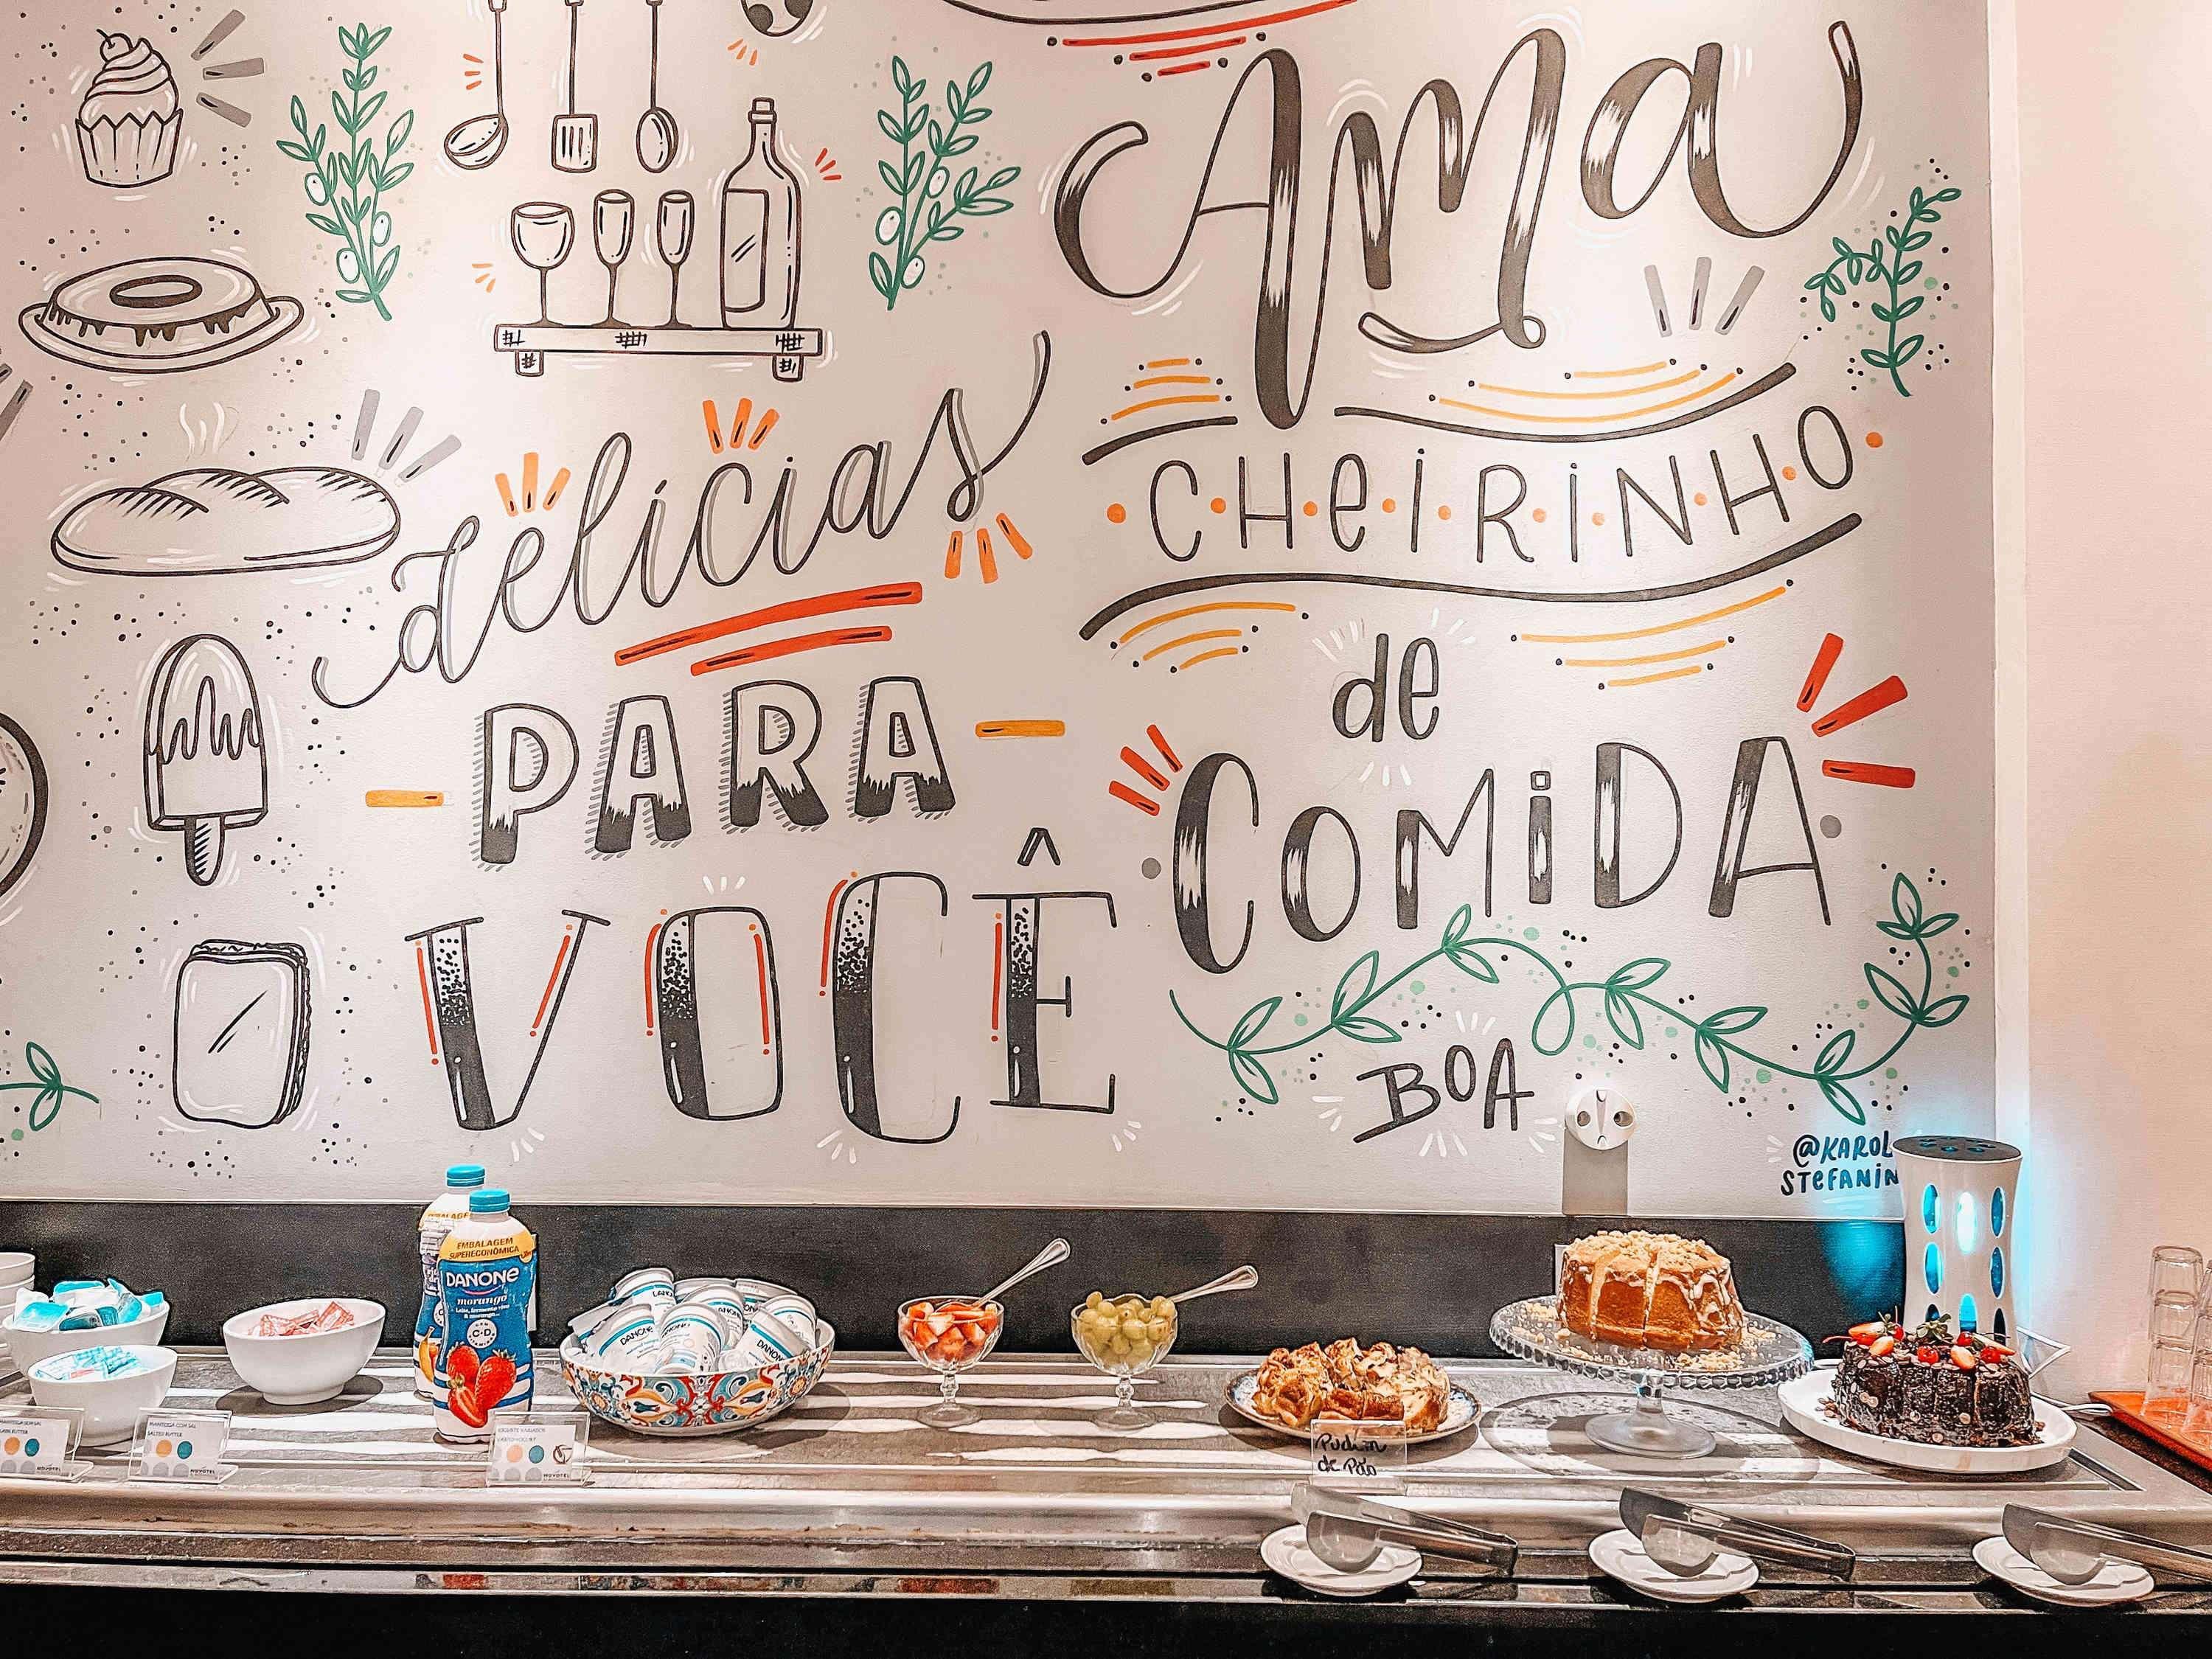 Ama
CHEIRINHO
de
COMIDA
BOA
@KAROL
STEFANIN
delícias
PARA
VOCÊ
EMBALAGEM
SUPERECONÔMICA
DANONE
morango
DANONE
DANONE
DANONE
MANTEIGA COM SAL
SALTED BUTTER
NOVOTEL
NOVOTEL
NOVOTEL
Pudim
de Pão